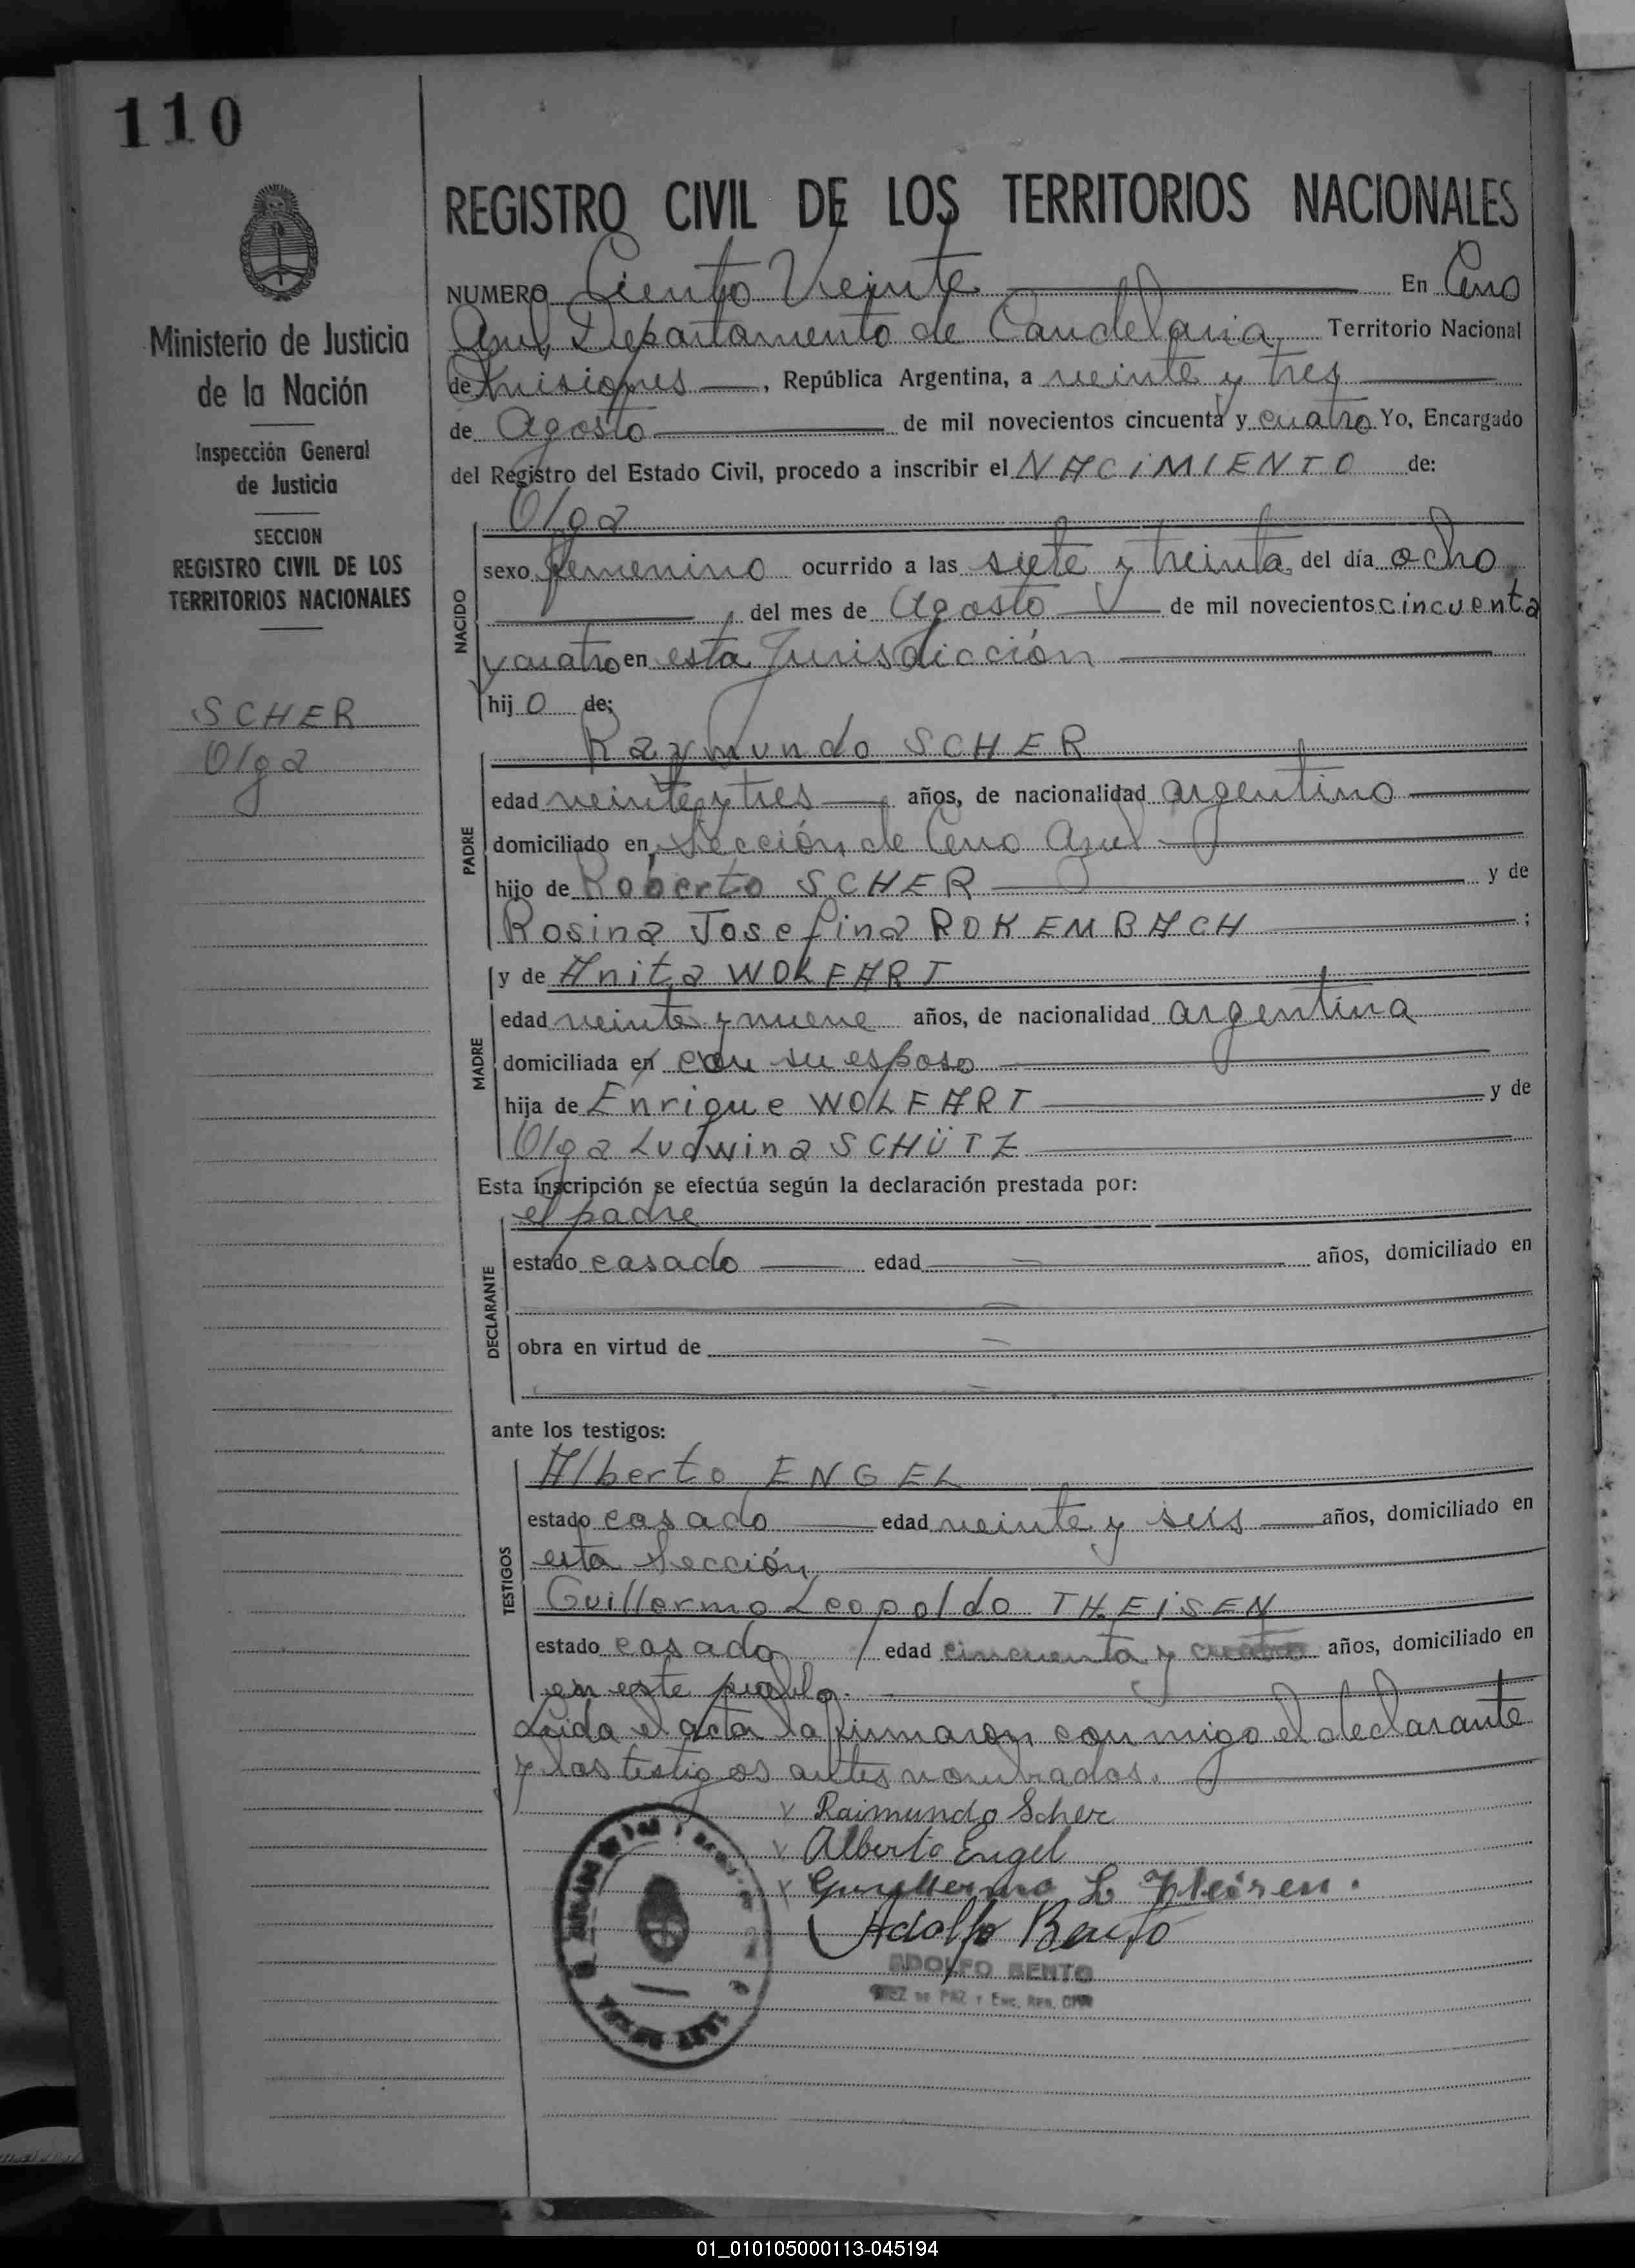 110
Ministerio de Justicia
de la Nación
Inspección General
de Justicia
SECCION
REGISTRO CIVIL DE LOS
TERRITORIOS NACIONALES
SCHER
Olga
REGISTRO CIVIL DE LOS TERRITORIOS NACIONALES
NUMERO Ciento Veinte En Cerro
Azul, Departamento de Candelaria Territorio Nacional
de Misiones, República Argentina, a veinte y tres
de Agosto de mil novecientos cincuenta y cuatro Yo, Encargado
del Registro del Estado Civil, procedo a inscribir el NACIMIENTO de:
NACIDO
Olga
sexo femenino ocurrido a las siete y treinta del día ocho
, del mes de Agosto de mil novecientos cincuenta
y cuatro en esta Jurisdicción
hijo de:
PADRE
Raymundo SCHER
edad veinte y tres años, de nacionalidad argentino
domiciliado en Sección de Cerro Azul
hijo de Roberto SCHER y de
Rosina Josefina ROKEMBACH ;
MADRE
y de Anita WOLFART
edad veinte y nueve años, de nacionalidad argentina
domiciliada en con su esposo
hija de Enrique WOLFART y de
Olga Ludwina SCHÜTZ
Esta inscripción se efectúa según la declaración prestada por:
DECLARANTE
el padre
estado casado edad años, domiciliado en
obra en virtud de
ante los testigos:
TESTIGOS
Alberto ENGEL
estado casado edad veinte y seis años, domiciliado en
esta Sección
Guillermo Leopoldo THEISEN
estado casado edad cincuenta y cuatro años, domiciliado en
en este pueblo.
Leida el acta la firmaron conmigo el declarante
y los testigos antes nombrados.
x Raimundo Scher
x Alberto Engel
x Guillermo L. Theisen.
Adolfo Bento
ADOLFO BENTO
JUEZ DE PAZ Y ENC. REG. CIVIL
01_010105000113-045194